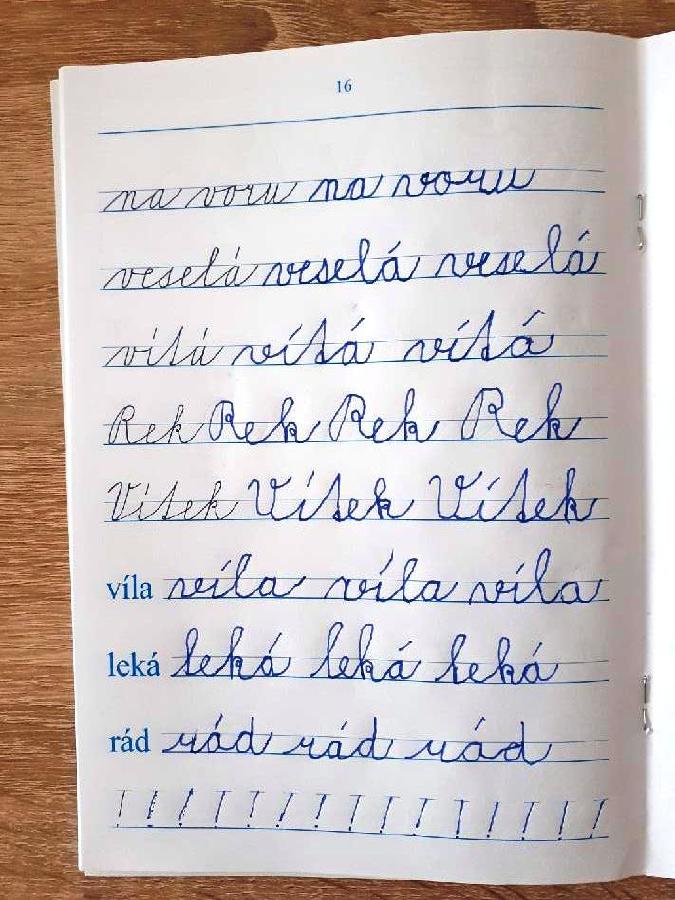 16
na voru na voru
veselá veselá veselá
vítá vítá vítá
Rek Rek Rek Rek
Vítek Vítek Vítek
víla víla víla víla
leká leká leká leká
rád rád rád rád
! ! ! ! ! ! ! ! ! ! ! ! ! ! !